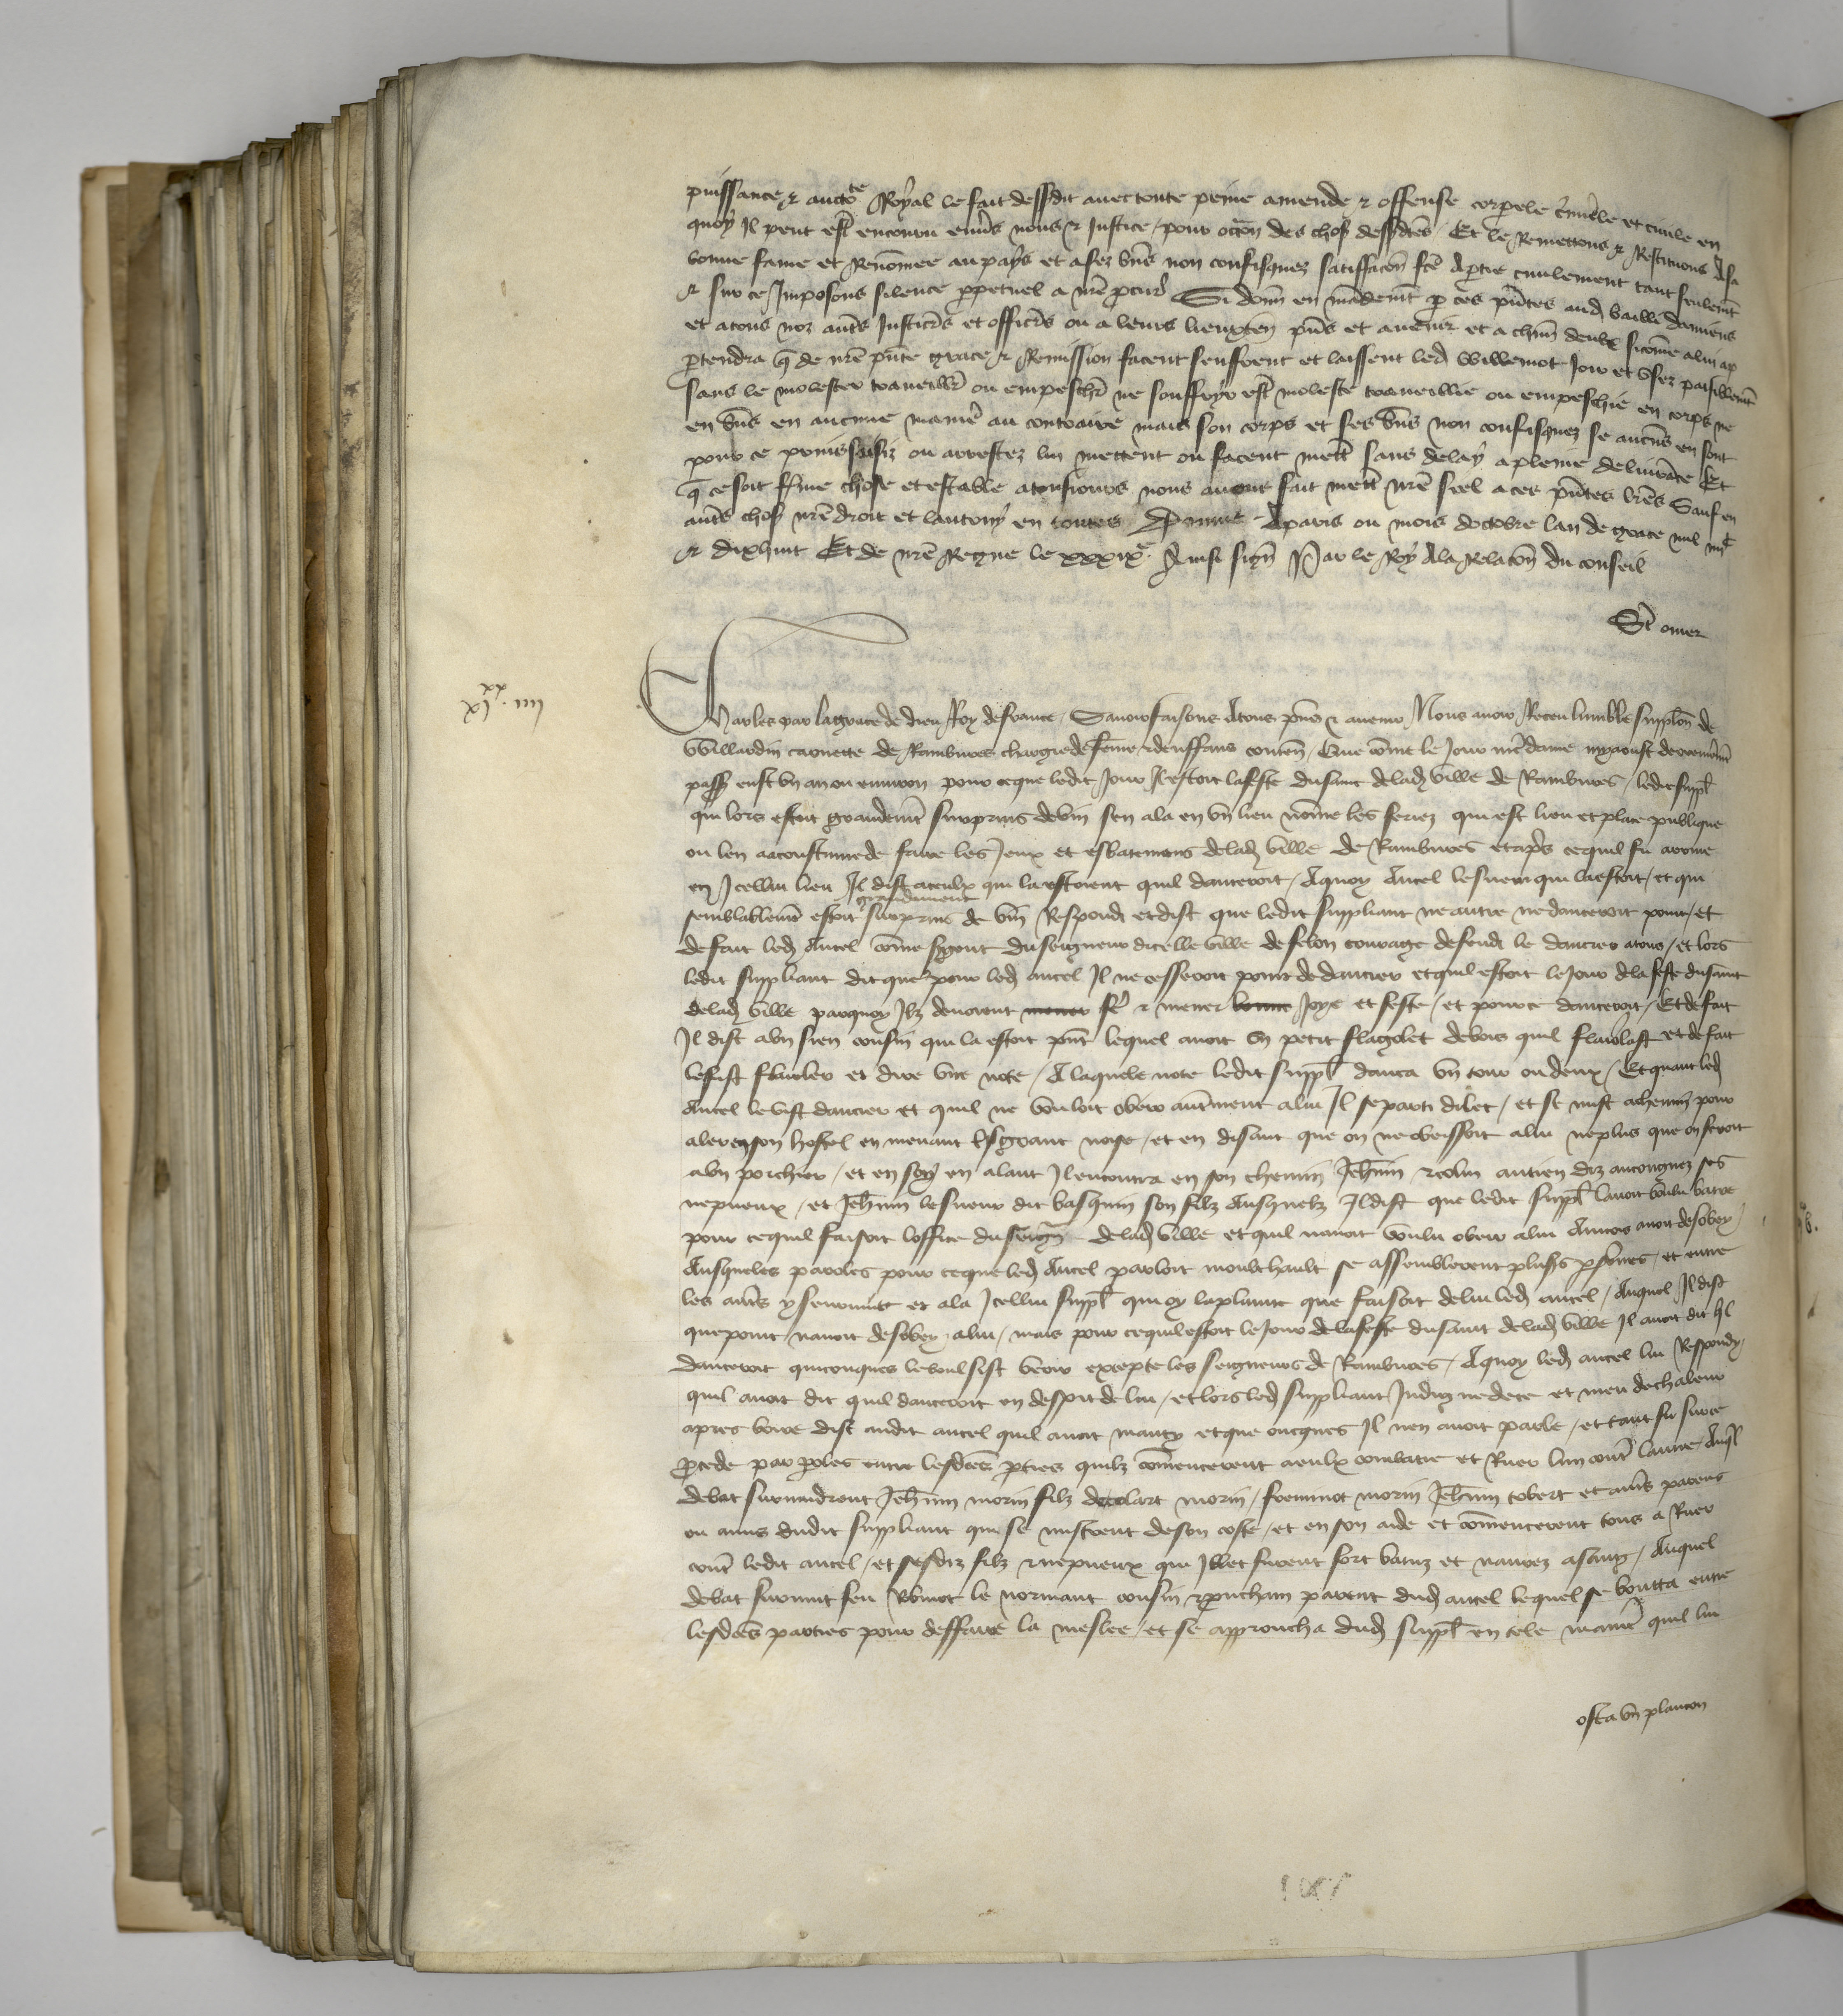 puissance & auctote Royal le fait dessdit avec toute peine amende & offense corpele cimele et civile en
quoy Il peut estre encouru envers nous & Justice / pour occon des choses dessdtes Et le Remettons & Restituons A sa
bonne fame et Renommee au pays et a sez biens non confisquez satisfaccon fce A ptie civilement tant seulemt
& sur ce Imposons silence ppetuel a nre pcur Si donn en mademt p ces pntes aud bailli damiens
et atous noz auts Justicrs et officrs ou a leurs lieuxten pns et avenir et a chun deulx sicome alui ap
ptendra q de nre pnte grace & Remission facent seuffrent et laissent led Willemot Joir et user paisiblemt
sans le molester travaillr ou empeschr ne souffrir estre moleste travaillie ou empeschie en corps ne
en bns en aucune manie au contraire mais son corps et ses bns non confisquez se aucuns en sont
pour ce prins saisiz ou arrestez lui mettent ou facent mett sans delay a pleine delivrace Et
q ce soit ferme chose et estable atousiours nous avons fait mett nre seel a ces pntes lres Sauf en
auts choses nre droit et lautruy en toutes Donne Aparis ou mois doctobre lan de grace mil iiiic
& dixhuit Et de nre Regne le xxxixe. Ainsi sign Par le Roy Ala Relacon du conseil
St omer
xx
xi . iiii
Charles par lagrace de dieu Roy de france / Savoir faisons Atous pns & avenir Nous avoir Receu lumble supplon de
Willardin caouette de Rambures chargie de feme & denffans conten / Que come le Jour nre dame myaoust derremrement
passe eust un an ou environ pour ceque ledit Jour Ilestoit lafeste dusaint delad ville de Rambures / ledit suppl
qui lors estoit grandemt surprins devin sen ala en un lieu nome les feriez qui est lieu et place publique
ou len aacoustumede faire les Jeux et esbatemens delad ville de Rambures et aps cequil fu arrive
en Icellui lieu Il dist aceulx qui la estoient quil danceroit / Aquoy Ancel lesueur qui laestoit / et qui
semblablemt estoit grandement surprins de vin Respondi et dist que ledit suppliant ne autre ne danceroit point / et
de fait led Ancel come sergent du seigneur dicelle ville de felon courage defendi le dancier atous / et lors
ledit suppliant dit que pour led ancel Il ne cesseroit point de dancier et quil estoit le Jour dela feste dusaint
delad ville parquoy Ilz devoient mener fe & mener bonne Joye et feste / et pource danceroit / Et de fait
Il dist aun sien cousin qui la estoit pnt lequel avoit un petit flagolet debois quil flaiolast et de fait
lefist flaioler et dire une note / A laquele note ledit suppl danca un tour ou deux / Et quant led
Ancel levist dancier et quil ne vouloit obeir autrement alui Il separti dilec / et se mist achemin pour
alerenson hostel en menant tsgrant noise / et en disant que on ne obeissoit alui neplus que on feroit
aun porchier / et en soy en alant Ilencontra en son chemin Jehnin & colin antien diz ancongnez ses
nepveux / et Jehnin lesueur dit basquin son filz Ausquelz Ildist que ledit suppl lavoit voulu batre
pour cequil faisoit loffice duseign delad ville et quil navoit voulu obeir alui Aincois avoit desobey /
Ausqueles paroles pour ceque led Ancel parloit moulthault se assemblerent plusrs psones / et entre
les auts y survint et ala Icellui suppl qui oy laplainte que faisoit delui led ancel / Auquel Il dist
quepoint navoit desobey alui / mais pour cequilestoit leJour delafeste dusaint delad ville Il avoit dit ql
danceroit quiconques levoulsist veoir excepte les seigneurs de Rambures / Aquoy led ancel lui Respondy /
quil avoit dit quil danceroit en despit de lui / et lors led suppliant Indigne dece et meu de chaleur
apres boire dist audit ancel quil avoit menty et que oncques Il nen avoit parle / et tant fu surce
pcede par poles entre lesdtes pties quilz comencerent aeulx combatre et Ruer lun cont lautre / Auql
debat survindrent Jehnin morin filz decolart morin / freminot morin Jehnin tobert et auts parens
ou amis dudit suppliant qui se mistrent deson coste / et en son aide et comencerent tous a Ruer
cont ledit ancel / et sesdiz filz & nepveux qui Illec furent fort batuz et navrez asang / Auquel
debat survint feu Robinot le normant cousin & prucham parent dud ancel lequel se boutta entre
lesdtes parties pour deffaire la meslee / et se approucha dud suppl en tele manie quil lui
osta un plancon